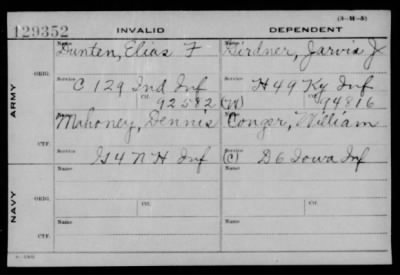 (3-M-5)
129352 INVALID DEPENDENT
Name Name
Dunten, Elias F Girdner, Jarvis J
ORIG. Service Service
C 129 Ind Inf H 49 Ky Inf
Ctf. 92572 (W) Ctf. 94816
ARMY
Mahoney, Dennis Conger, William
CTF. Service Service
G 4 N H Inf (C) D 6 Iowa Inf
Name Name
ORIG. Service Ctf. Service Ctf.
NAVY
Name Name
CTF. Service Service